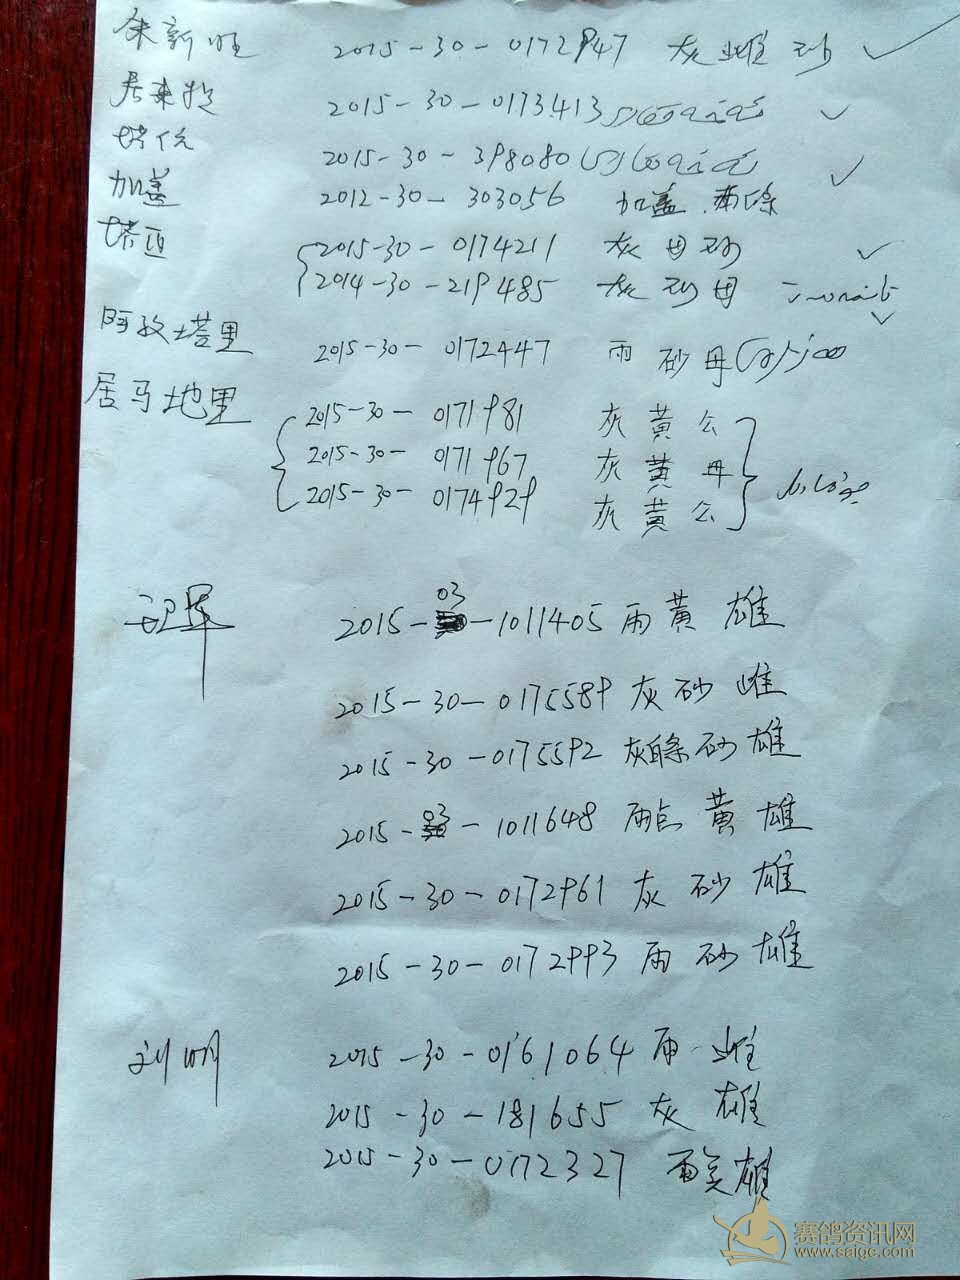 余新旺 2015-30-0172947 灰雌砂
2015-30-0173413
2015-30-398080
加盖 2012-30-303056 加盖.雨条
塔西 2015-30-0174211 灰母砂
2014-30-219485 灰砂母
阿孜塔里 2015-30-0172447 雨砂母
居马地里 2015-30-0171981 灰黄公
2015-30-0171967 灰黄母
2015-30-0174929 灰黄公
2015-03-1011405 雨黄雄
2015-30-0175589 灰砂雌
2015-30-0175592 灰條砂雄
2015-03-1011648 雨点黄雄
2015-30-0172961 灰砂雄
2015-30-0172993 雨砂雄
刘明 2015-30-0161064 雨雌
2015-30-181655 灰雄
2015-30-0172327 雨 雄
赛鸽资讯网
www.saige.com